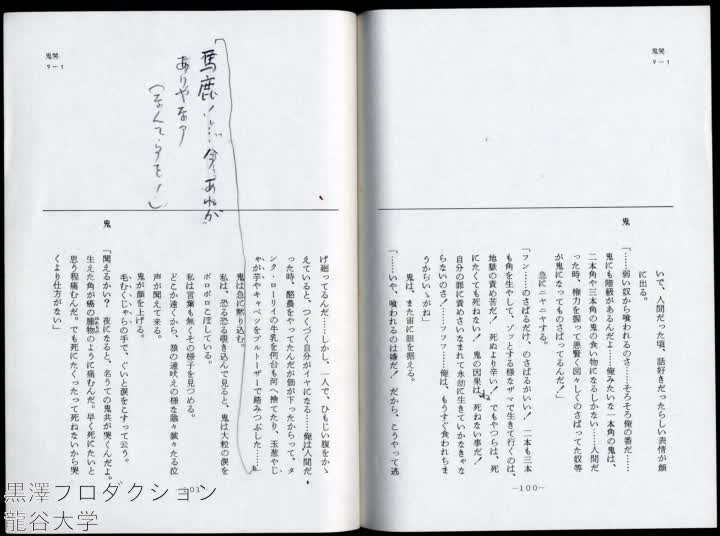 鬼哭
9-1
鬼
いで、人間だった頃、話好きだったらしい表情が顔
に出る。
「……弱い奴から喰われるのさ……そろそろ俺の番だ……
鬼にも階級があるんだよ……俺みたいな一本角の鬼は、
二本角や三本角の鬼の食い物になるしかない……人間だ
った時、権力を握って悪賢く図々しくのさばってた奴等
が鬼になってものさばってるんだ！」
急にニヤニヤする。
「フン……のさばるだけ、のさばるがいい！　二本も三本
も角を生やして、ゾッとする様なザマで生きて行くのは、
地獄の責め苦だ！　死ぬより辛い！　でもやつらは、死
にたくても死ねない！　鬼の因果は、死ねない事だ！
自分の罪に責めさいなまれて永劫に生きていかなきゃな
らないのさ！……フフフ……俺は、もうすぐ食われちま
うからいゝがね」
ね
鬼は、また宙に眼を据える。
「……いや、喰われるのは嫌だ！　だから、こうやって逃
—100—
鬼哭
9-1
「馬鹿！……今、あれが
ありやなア
（なんて、夕を！）」
鬼
げ廻ってるんだ……しかし、一人で、ひもじい腹をかゝ
えていると、つくづく自分がイヤになる……俺は人間だ
った時、酪農をやってたんだが価が下ったからって、タ
ンク・ローリイの牛乳を何台も河へ捨てたり、玉葱やじ
ゃが芋やキャベツをブルトーザーで踏みつぶした……」
鬼は急に黙り込む。
私は、恐る恐る覗き込んで見ると、鬼は大粒の涙を
ボロボロこぼしている。
私は言葉も無くその様子を見つめる。
どこか遠くから、狼の遠吠えの様な陰々滅々たる泣
声が聞えて来る。
鬼が顔を上げる。
毛むくじゃらの手で、ぐいと涙をこすって云う。
「聞えるかい？　夜になると、名うての鬼共が哭くんだよ。
生えた角が癌の腫物のように痛むんだ。早く死にたいと
思う程痛むんだ。でも死にたくったって死ねないから哭
くより仕方がない」
101—
黒澤プロダクション
龍谷大学